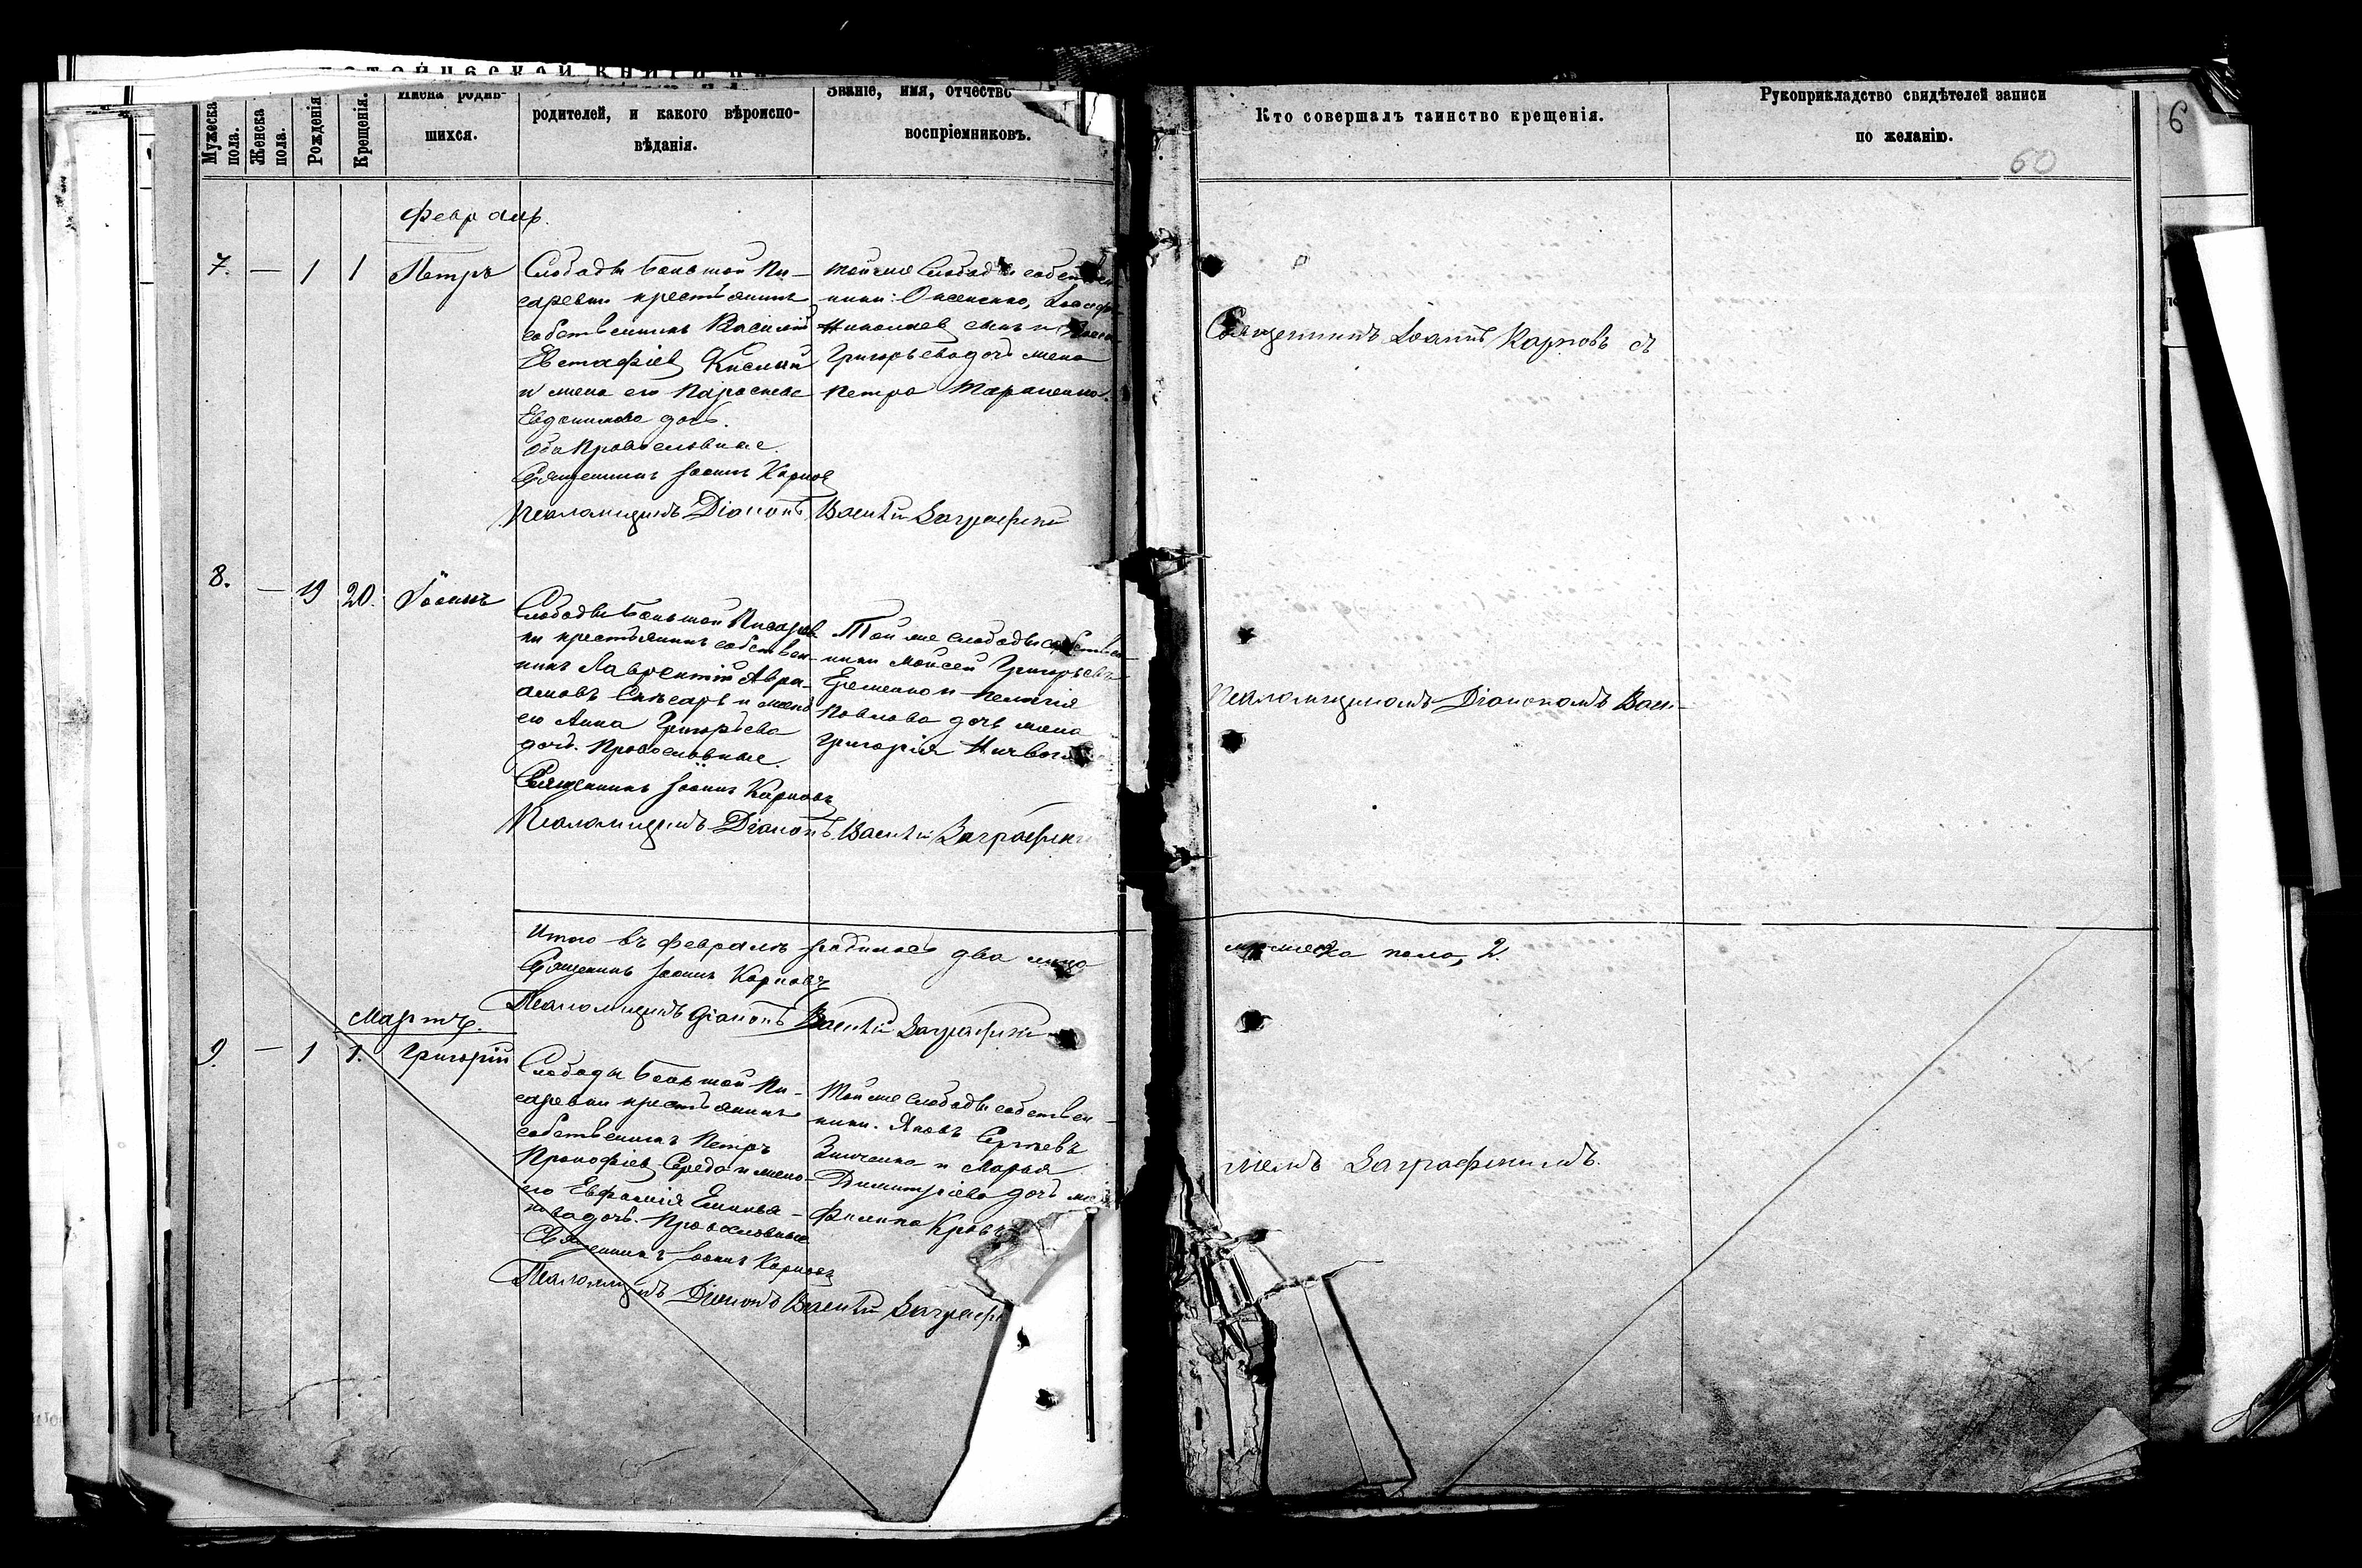 Мужеска пола.
Женска пола.
Рожденія
Крещенія.
Имена родив-
шихся.
родителей, и какого вѣроиспо-
вѣданія.
Званіе, имя, отчество
воспріемниковъ.
Кто совершалъ таинство крещенія.
Рукоприкладство свидѣтелей записи
по желанію.
6
60
7. — 1 1 Петръ
Слободы Большой Пи-
саревки крестьянинъ
собственникъ Василій
Евстафіев Кислый
и жена его Параскева
Евдокимова дочь.
оба Православные.
Священникъ Іоаннъ Карпов
Псаломщикъ Діаконъ Василій Заграфскій
тойже Слободы
Николаев сынъ и
Григорьева дочь жена
Петра Тараненко.
Священникъ Іоаннъ Карповъ съ
8. — 19 20. Іоаннъ
Слободы Большой Писарев
ки крестьянинъ собствен-
никъ Лаврентій Авра-
амовъ Слѣсарь и жена
его Анна Григорьева
дочь. Православные.
Священникъ Іоаннъ Карповъ
Псаломщикъ Діаконъ Василій Заграфскі
Той же слободы
ники Моисей Григорьевъ
Еременко и Пелагія
Павлова дочь жена
Григорія
Псаломщикомъ Діакономъ Васи-
Итого въ февралѣ родилось два лица
мужеска пола, 2.
Священникъ Іоаннъ Карповъ
Псаломщикъ Діаконъ Василій Заграфскій
Мартъ.
9. — 1 1. Григорій
Слободы Большой Пи-
саревки крестьянинъ
собственникъ Петръ
Прокофіев Середа и жена
его Евфимія Емилья-
нова дочь. Православные
Священникъ Іоаннъ Карповъ
Псаломщикъ Діаконъ Василій Заграфс
Той же Слободы собствен-
ники. Яковъ Сергѣевъ
Зинченко и Марья
Димитріева дочь
Филипа
ліемъ Заграфскимъ.